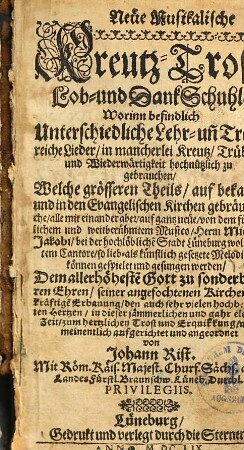 Neüe Musikalische
Kreutz-Tros
Lob-und DankSchuhl
Worinn befindlich
Unterschiedliche Lehr-uñ Tro
reiche Lieder/ in mancherlei Kreutz/ Trüb
und Wiederwärtigkeit hochnützlich zu
gebrauchen/
Welche grösseren Theils/ auf beka
und in den Evangelischen Kirchen gebräu
che/alle mit einander aber/auf gantz neüe/von dem für
lichem und weitberühmtem Musico/Herrn Mi
Jakobi/ bei der hochlöblichē Stadt Lüneburg wol
tem Cantore/so lieb-als künstlich gesetzte Melodi
können gespielet und gesungen werden/
Dem allerhöheste Gott zu sonderb
ren Ehren/ seiner angefochtenen Kirchen
kräftige Erbauung/den auch sehr vielen hochb
ten Hertzen/ in dieser jämmerlichen und gahr ele
Zeit/zum hertzlichen Trost und Erquikkung/
meinentlich aufgerichtet und angeordnet
von
Johann Rist.
Mit Röm. Käis. Majest. Churf. Sächs.
Landes Fürstl. Braunschw. Lüneb. Durchl.
PRIVILEGIIS.
Lüneburg/
Gedrukt und verlegt durch die Stern
ANNO M DC LIX